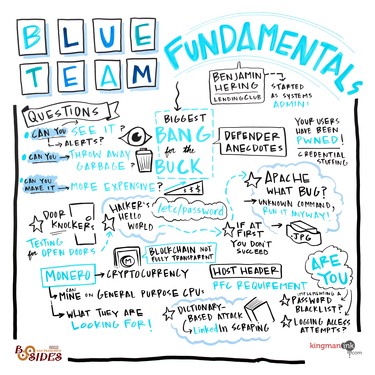 BLUE
TEAM
FUNDAMENTALS
BENJAMIN
HERING
LENDINGCLUB
STARTED
AS SYSTEMS
ADMIN!
QUESTIONS
CAN YOU SEE IT?
ALERTS?
CAN YOU THROW AWAY
GARBAGE?
CAN YOU
MAKE IT MORE EXPENSIVE?
$$$
BIGGEST
BANG
for the
BUCK
DEFENDER
ANECDOTES
YOUR USERS
HAVE BEEN
PWNED!
CREDENTIAL
STUFFING
APACHE
WHAT BUG?
UNKNOWN COMMAND,
RUN IT ANYWAY!
DOOR
KNOCKERS
TESTING
for OPEN DOORS
HACKER'S
HELLO
WORLD
/etc/password
IF AT FIRST
YOU DON'T
SUCCEED
JPG
M
BLOCKCHAIN NOT
FULLY TRANSPARENT
MONERO
CRYPTOCURRENCY
CAN
MINE ON GENERAL PURPOSE CPUs
WHAT THEY ARE
LOOKING FOR!
HOST HEADER
RFC REQUIREMENT
DICTIONARY-
BASED ATTACK
LinkedIn SCRAPING
ARE
YOU
PASSWORD
BLACKLIST?
LOGGING ACCESS
ATTEMPTS?
BSIDES
kingmanink
.com